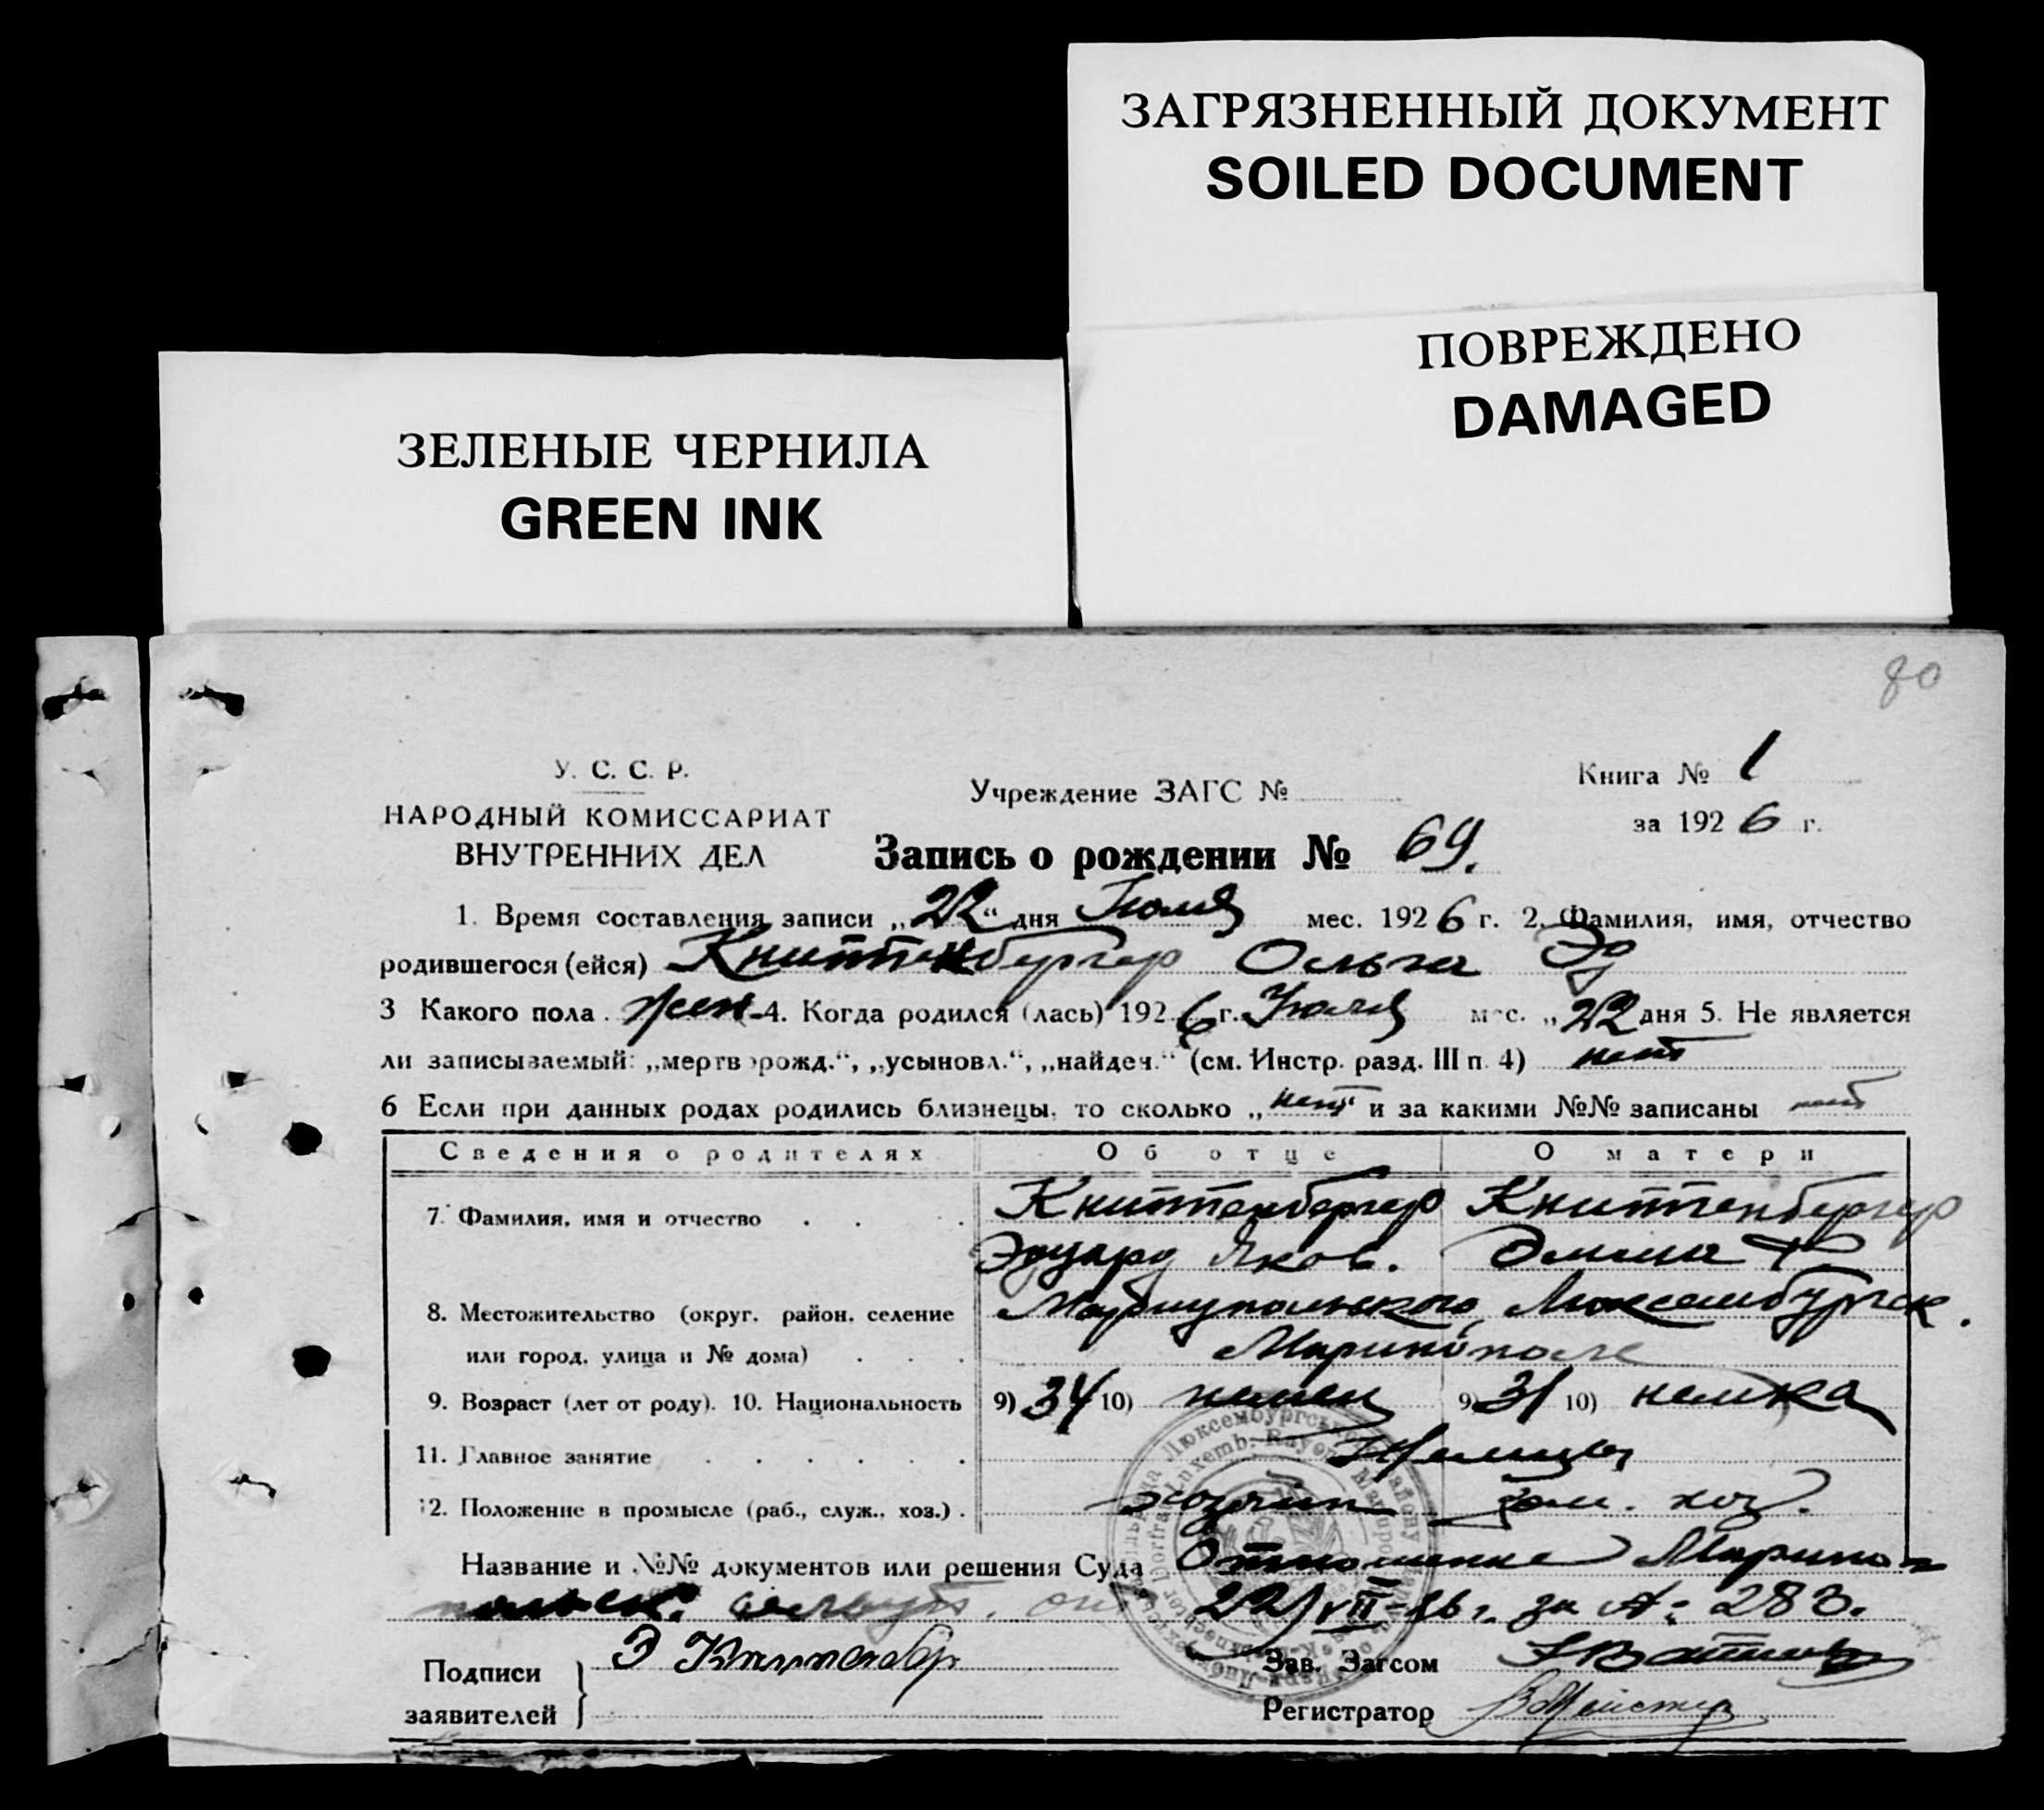 ЗАГРЯЗНЕННЫЙ ДОКУМЕНТ
SOILED DOCUMENT
ПОВРЕЖДЕНО
DAMAGED
ЗЕЛЕНЫЕ ЧЕРНИЛА
GREEN INK
80
У. С. С. Р.
НАРОДНЫЙ КОМИССАРИАТ
ВНУТРЕННИХ ДЕЛ
Учреждение ЗАГС №
Книга № 1
за 1926 г.
Запись о рождении № 69.
1. Время составления записи „22“ дня Июля мес. 1926 г. 2. Фамилия, имя, отчество
родившегося (ейся) Книттенбергер Ольга Эд
3 Какого пола жен. 4. Когда родился (лась) 1926 г. Июля мес. „22 дня 5. Не является
ли записываемый: „мертворожд.“, „усыновл.“, „найден.“ (см. Инстр. разд. III п. 4) нет
6 Если при данных родах родились близнецы, то сколько „нет“ и за какими №№ записаны нет
Сведения о родителях Об отце О матери
7. Фамилия, имя и отчество Книттенбергер Книттенбергер
Эдуард Яков. Эмма Ф
8. Местожительство (округ, район, селение Мариупольского, Люксембургск.
или город, улица и № дома) Маринополе
9. Возраст (лет от роду). 10. Национальность 9) 34 10) немец 9) 31 10) немка
11. Главное занятие
12. Положение в промысле (раб., служ., хоз.) хозяин дом. хоз.
Название и №№ документов или решения Суда Отношение Маринопольск. сельсов. от 22/VII-26 г. за №: 283.
Подписи
заявителей
Зав. Загсом
Регистратор